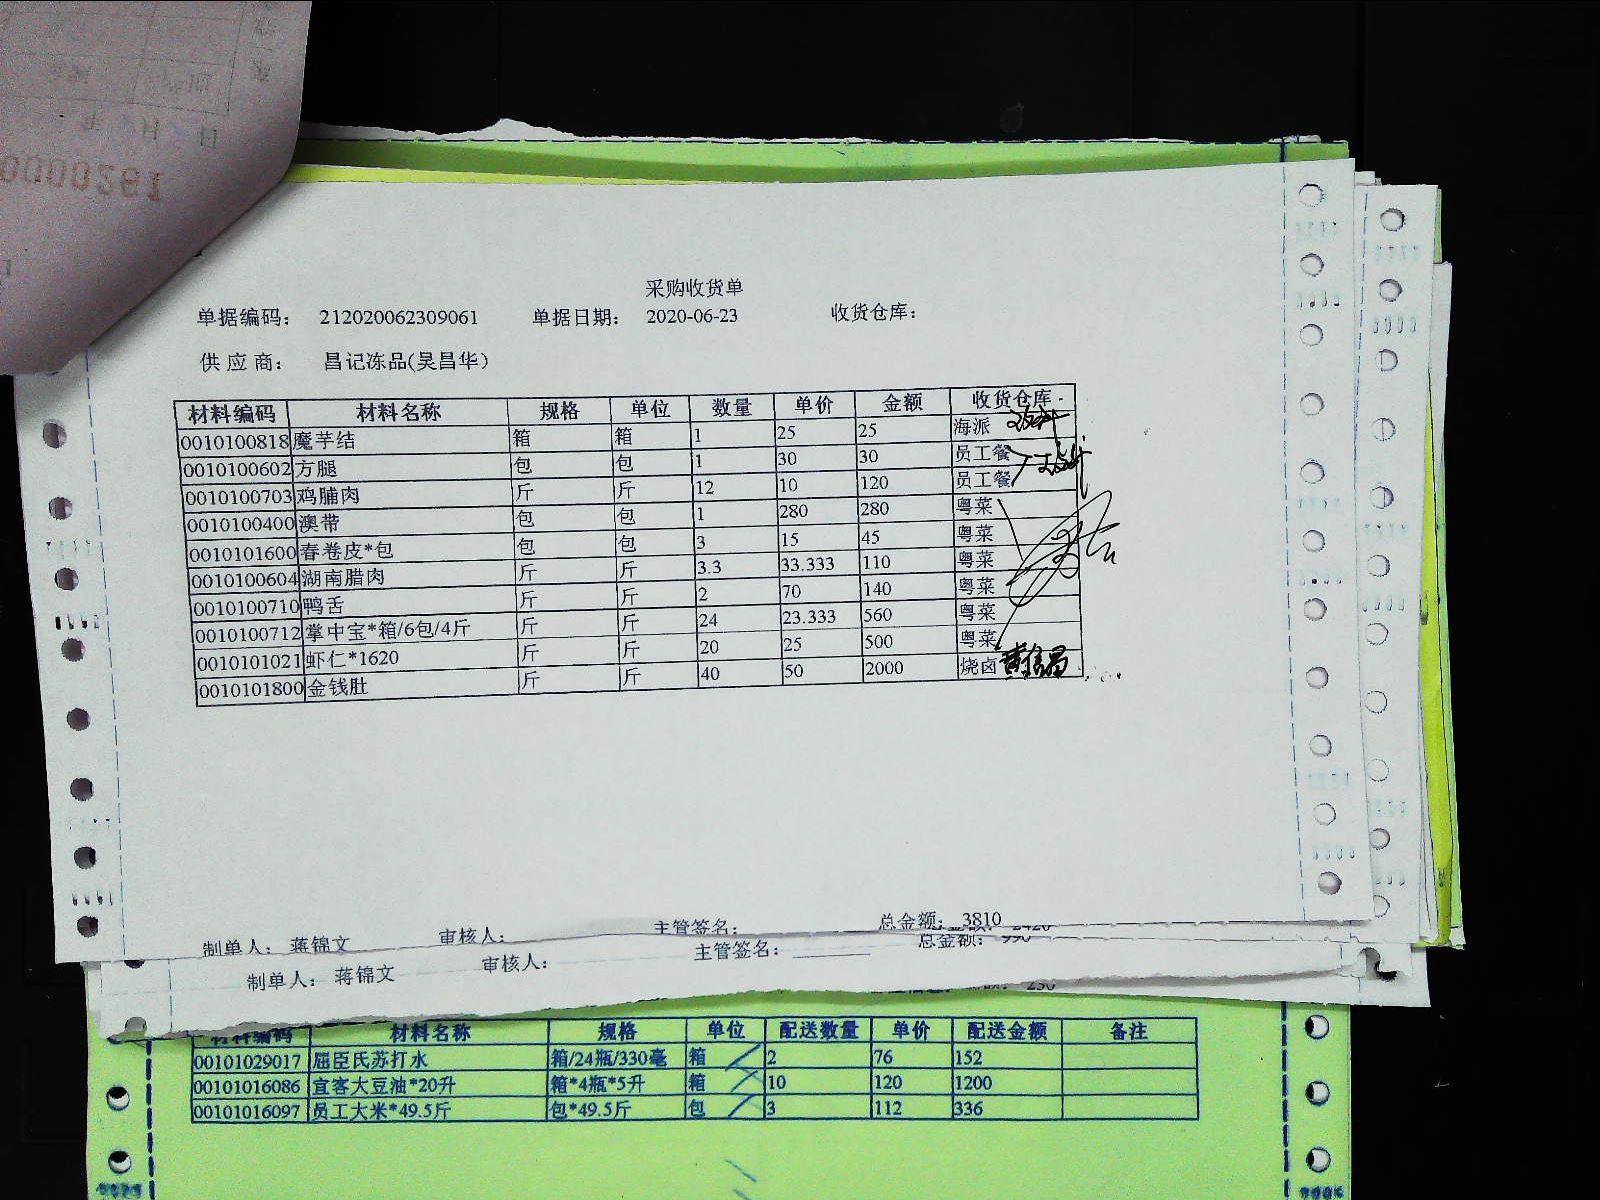 0000261
采购收货单
单据编码： 212020062309061 单据日期： 2020-06-23 收货仓库：
供 应 商： 昌记冻品(吴昌华)
材料编码 材料名称 规格 单位 数量 单价 金额 收货仓库
0010100818 魔芋结 箱 箱 1 25 25 海派
0010100602 方腿 包 包 1 30 30 员工餐
0010100703 鸡脯肉 斤 斤 12 10 120 员工餐
0010100400 澳带 包 包 1 280 280 粤菜
0010101600 春卷皮*包 包 包 3 15 45 粤菜
0010100604 湖南腊肉 斤 斤 3.3 33.333 110 粤菜
0010100710 鸭舌 斤 斤 2 70 140 粤菜
0010100712 掌中宝*箱/6包/4斤 斤 斤 24 23.333 560 粤菜
0010101021 虾仁*1620 斤 斤 20 25 500 粤菜
0010101800 金钱肚 斤 斤 40 50 2000 烧卤
制单人： 蒋锦文 审核人： 主管签名： 总金额： 3810
制单人： 蒋锦文 审核人： 主管签名： 总金额： 990
材料编码 材料名称 规格 单位 配送数量 单价 配送金额 备注
00101029017 屈臣氏苏打水 箱/24瓶/330毫 箱 2 76 152
00101016086 宜客大豆油*20升 箱*4瓶*5升 箱 10 120 1200
00101016097 员工大米*49.5斤 包*49.5斤 包 3 112 336